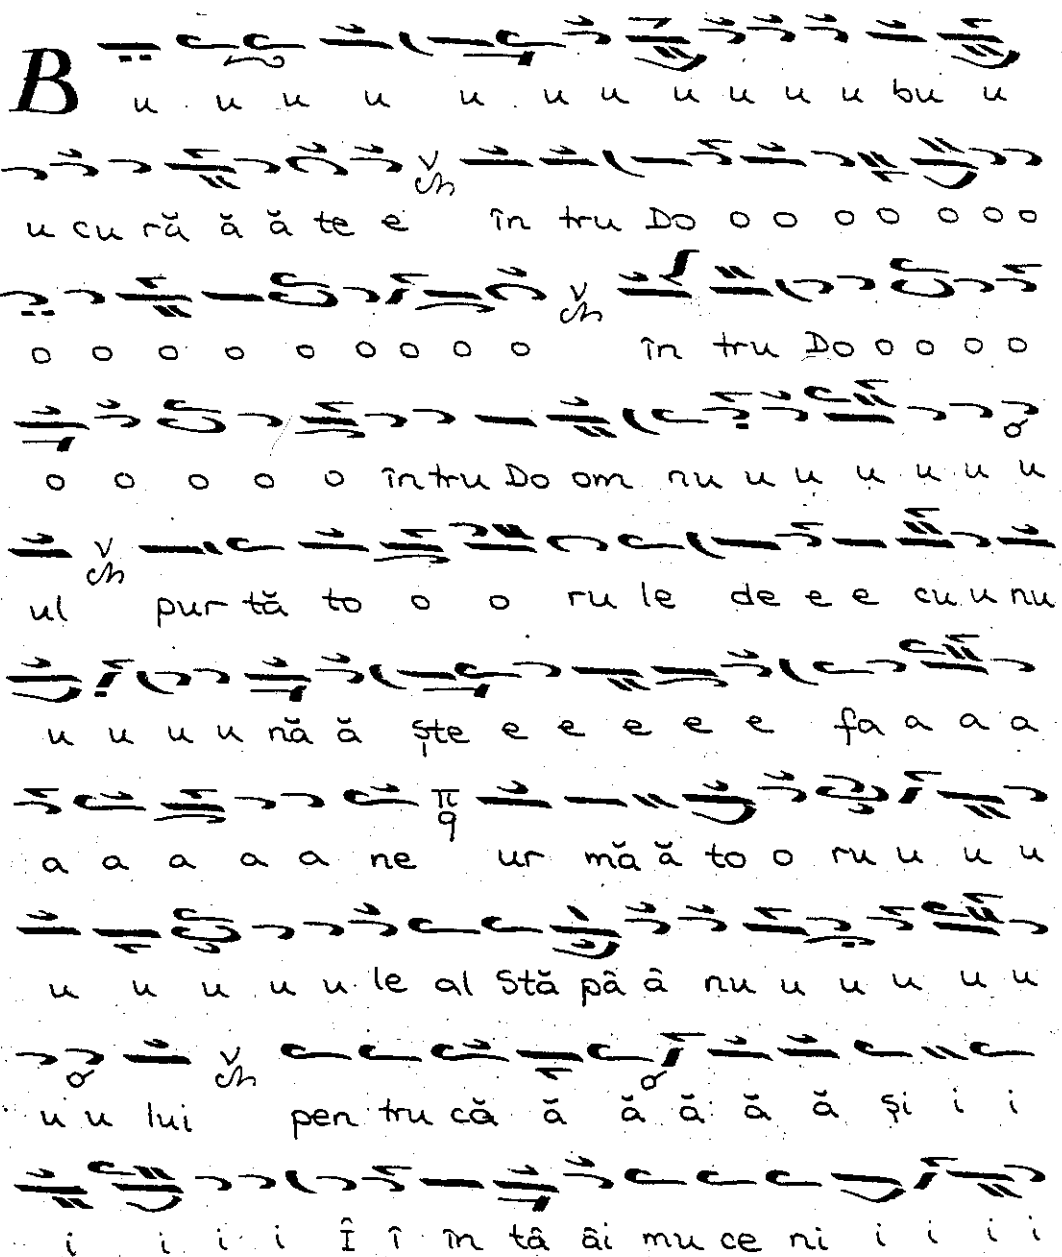 B u u u u u u u u u u u bu u
u cu ră ă ă te e în tru Do o o o o o o o
o o o o o o o o o în tru Do o o o o
o o o o o în tru Do om nu u u u u u u
ul pur tă to o o ru le de e e cu u nu
u u u u nă ă ște e e e e e fa a a a
a a a a a ne π q ur mă ă to o ru u u u
u u u u u le al Stă pâ â nu u u u u u
u u lui pen tru că ă ă ă ă ă și i i
i i i i Î î în tâ âi mu ce ni i i i i